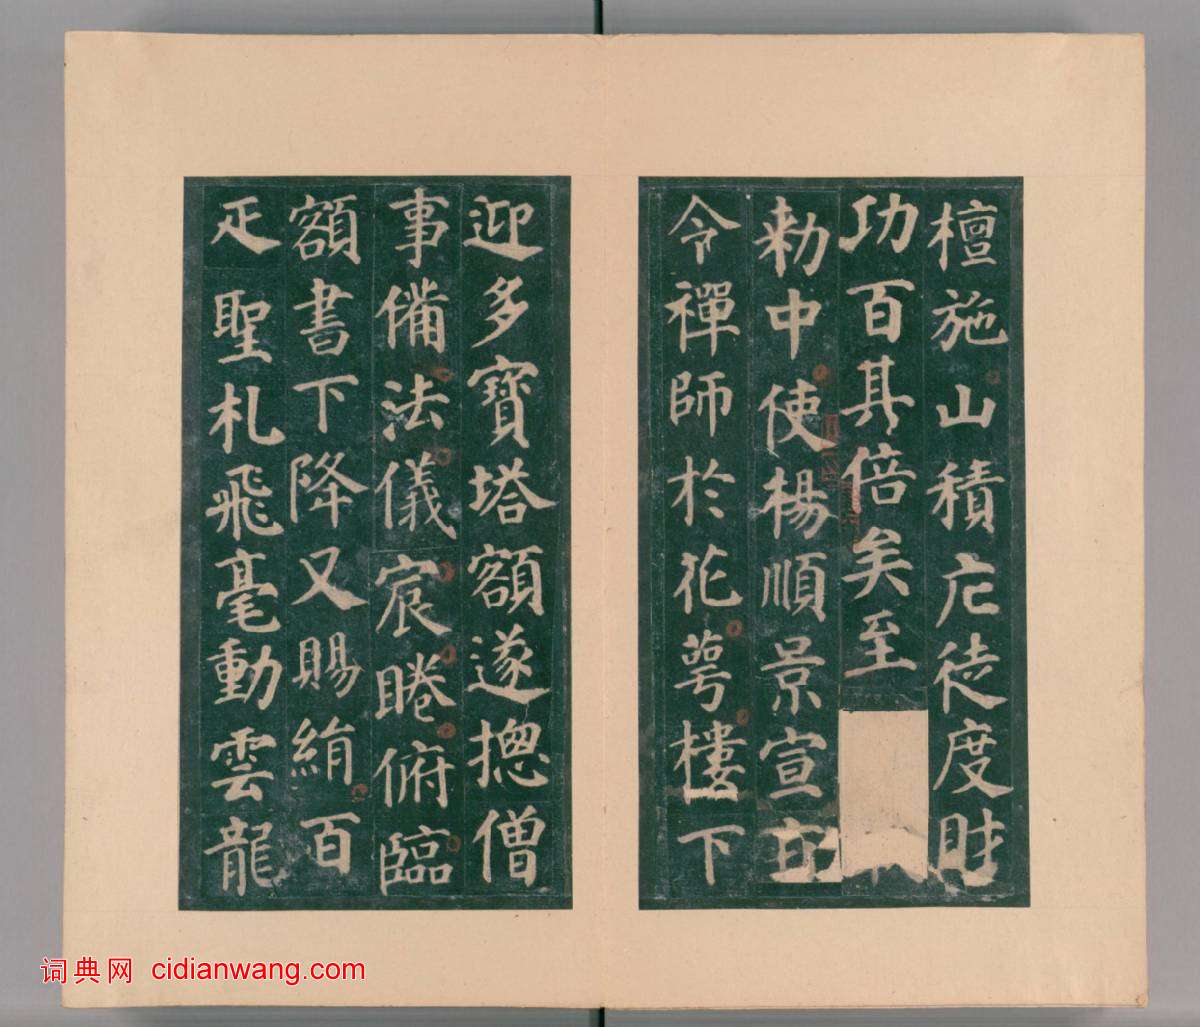 檀施山積庀徒度財
功百其倍矣至
勑中使楊順景宣
令禪師於花萼樓下
迎多寶塔額遂摠僧
事備法儀宸睠俯臨
額書下降又賜絹百
疋聖札飛毫動雲龍
词典网 cidianwang.com